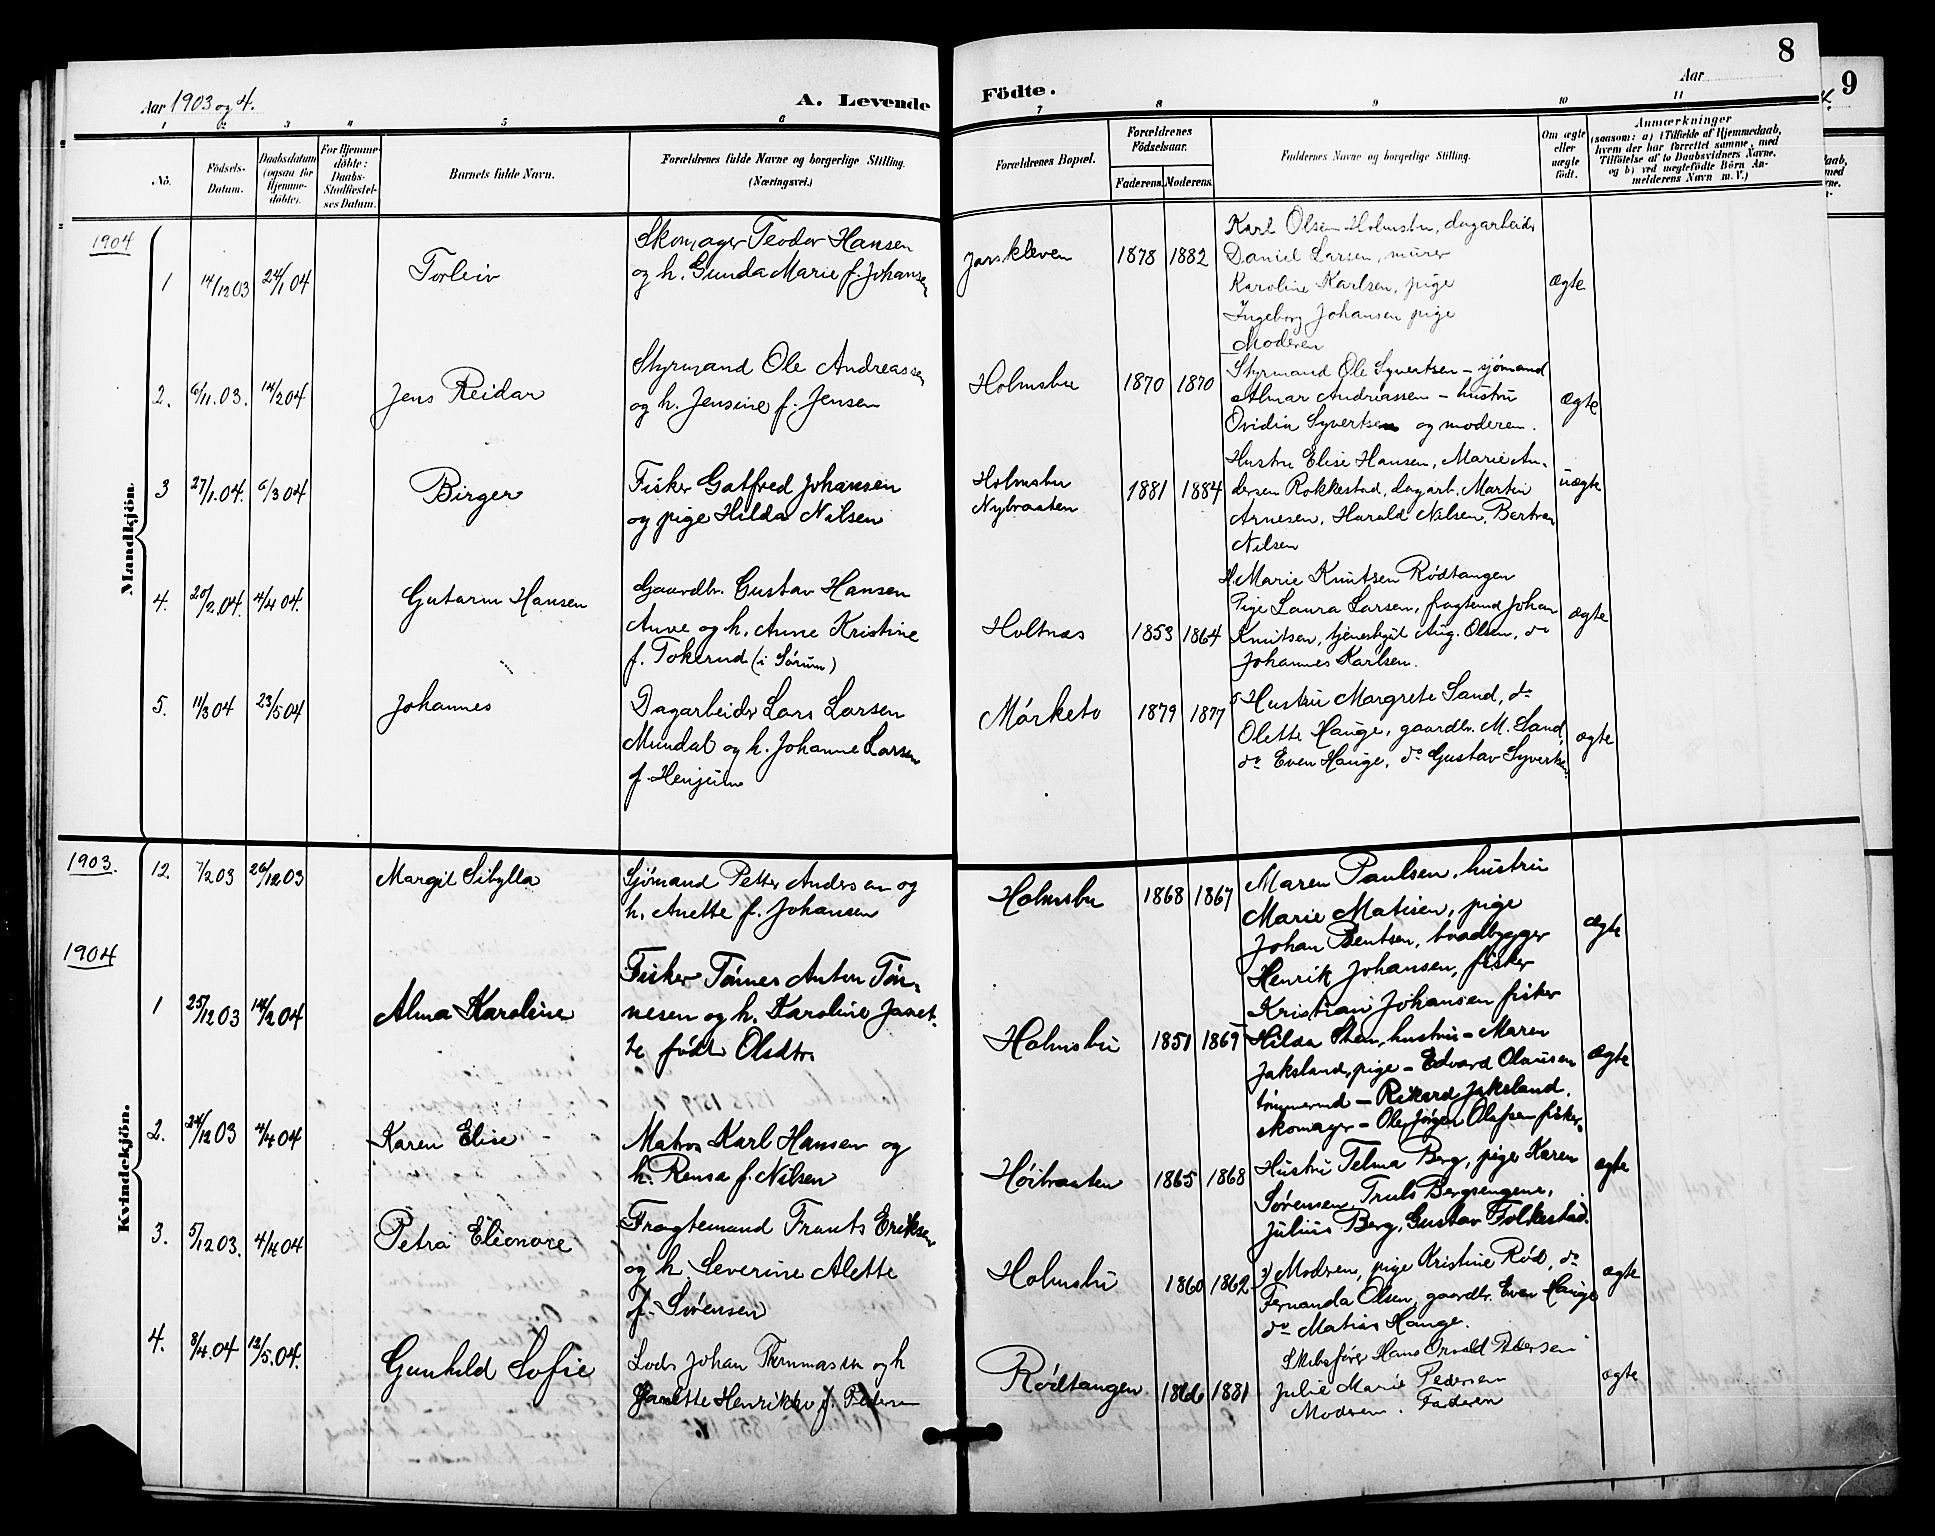 Aar 1903 og 4.
A. Levende
Födte.
Aar
8
9
1 2 3 4 5 6 7 8 9 10 11
No.
Födsels-
Datum.
Daabsdatum
(ogsaa for
Hjemme-
döbte).
For Hjemme-
döbte:
Daabs-
Stadfæstel-
ses Datum.
Barnets fulde Navn.
Forældrenes fulde Navne og borgerlige Stilling.
(Næringsvei.)
Forældrenes Bopæl.
Forældrenes
Födselsaar.
Faderens. Moderens.
Faddernes Navne og borgerlige Stilling.
Om ægte
eller
uægte
födt.
Anmærkninger
(saasom: a) i Tilfælde af Hjemmedaab,
hvem der har forrettet samme, med
Tilföielse af to Daabsvidners Navne,
og b) ved uægtefödte Börn An-
melderens Navn m. V.)
Mandkjön.
1904
1 14/12 03 24/1 04 Torleiv
Skomager Teodor Hansen
og h. Gunda Marie f. Johansen
Jarskleven 1878 1882
Karl Olsen Holmsbu, dagarbeider
Daniel Larsen, murer
Karoline Karlsen, pige
Ingeborg Johansen pige
Moderen
ægte
2. 6/11.03. 14/2 04 Jens Reidar
Styrmand Ole Andreassen
og h. Jensine f. Jensen
Holmsbu 1870 1870
Styrmand Ole Syvertsen – sjömand
Almar Andreassen – hustru
Ovidia Syvertsen og moderen.
ægte
3 27/1.04. 6/3 04 Birger
Fisker Gotfred Johansen
og pige Hilda Nilsen
Holmsbu
Nybraaten
1881 1884
Hustru Elise Hansen, Marie An-
dersen Rokkestad, dagarb. Martin
Arnesen, Harald Nilsen, Bertran
Nilsen
uægte
4. 20/2.04. 4/4 04. Gutorm Hansen
Gaardbr. Gustav Hansen
Anve og h. Anne Kristine
f. Tokerud (i Sørum)
Holtnæs 1853 1864
H. Marie Knutsen Rødtangen
Pige Laura Larsen, fragtemd Johan
Knutsen, tjenestegut Aug. Olsen, do
Johannes Karlsen.
ægte
5. 11/3 04 23/5 04 Johannes
Dagarbeider Lars Larsen
Mundal og h. Johanne Larsen
f. Henjum
Mørketo 1879 1877
Hustru Margrete Sand, do
Olette Hauge, gaardbr. M. Sand,
do Even Hauge, do Gustav Syvertsen
ægte
Kvindekjön.
1903.
12. 7/2 03 26/12 03 Margit Sibylla
Sjömand Petter Andersen og
h. Anette f. Johansen
Holmsbu 1868 1867
Maren Paulsen, hustru
Marie Matisen, pige
Johan Bentsen, baadbygger
Henrik Johansen, fisker
Kristian Johansen fisker
ægte
1904
1 25/12 03 14/2 04 Alma Karoline
Fisker Tønnes Anton Tøn-
nesen og h. Karoline Janet-
te født Olsdtr.
Holmsbu 1851 1869
Hilda Steen, hustru – Maren
Jaksland, pige – Edvard Olausen
tømmermd – Rikard Jaksland,
skomager – Ole Jørgen Olafsen fisker.
ægte
2. 24/12 03 4/4 04 Karen Elise
Matros Karl Hansen og
h. Rensa f. Nilsen
Høibraaten 1865 1868
Hustru Telma Berg, pige Karen
Sørensen, Truls Bergsengene,
Julius Berg, Gustav Folkestad.
ægte
3. 5/12 03. 4/4 04 Petra Elionore
Fragtemand Frants Eriksen
og h Severine Alette
f. Sørensen
Holmsbu 1860 1862
Modren, pige Kristine Rød, do
Fernanda Olsen, gaardbr. Even Hauge
do Matias Hauge.
ægte
4. 8/4.04 12/5.04. Gunhild Sofie
Lods Johan Thommassen og h
Janette Henrikke f. Pedersen
Rødtangen 1866 1881
Skibsfører Hans Orvald Pedersen
Julie Marie Pedersen
Modren. Faderen
ægte